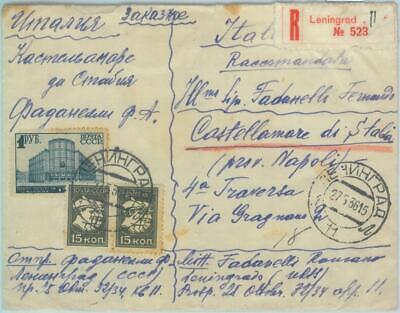 Италия
Заказное
Кастелламаре
ди Стабия
Фаданелли Ф. А.
1 РУБ.
ПОЧТА
СССР
15 КОП.
15 КОП.
ЛЕНИНГРАД
Отпр. Фаданелли
Ленинград (СССР)
пр. 25 Окт. 72/34, кв. 11.
R
Leningrad
№ 523
Raccomandata
Fadanelli Fernando
Castellamare di Stabia
(prov. Napoli)
4a Traversa
Via Gragnano
18
ЛЕНИНГРАД
Mitt. Fadanelli Romano
Leningrado
Prosp. 25 Oktobr. 72/34 app. 11